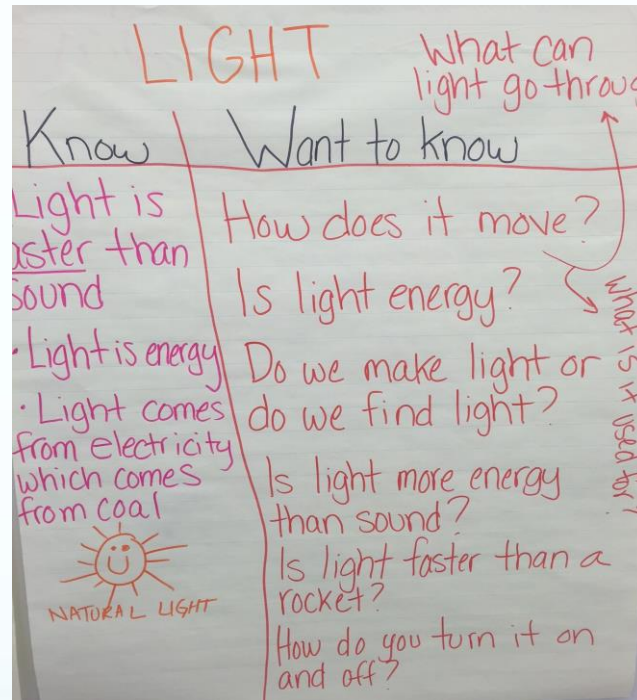 LIGHT
What can
light go throug
Know
Want to know
Light is
aster than
sound
· Light is energy
· Light comes
from electricity
which comes
from coal
NATURAL LIGHT
How does it move?
Is light energy?
Do we make light or
do we find light?
Is light more energy
than sound?
Is light faster than a
rocket?
How do you turn it on
and off?
What is it used for?